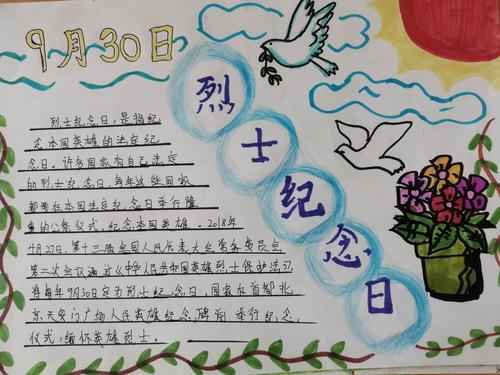 9月30日
烈士纪念日
烈士纪念日，是指纪
念本国英雄的法定纪
念日。许多国家都有自己法定
的烈士纪念日，每年这些国家
都要在本国法定纪念日举行隆
重的公祭仪式，纪念本国英雄。2018年
4月27日，第十三届全国人民代表大会常务委员会
第二次会议通过《中华人民共和国英雄烈士保护法》
将每年9月30日定为烈士纪念日，国家在首都北
京天安门广场人民英雄纪念碑前举行纪念
仪式，缅怀英雄烈士。